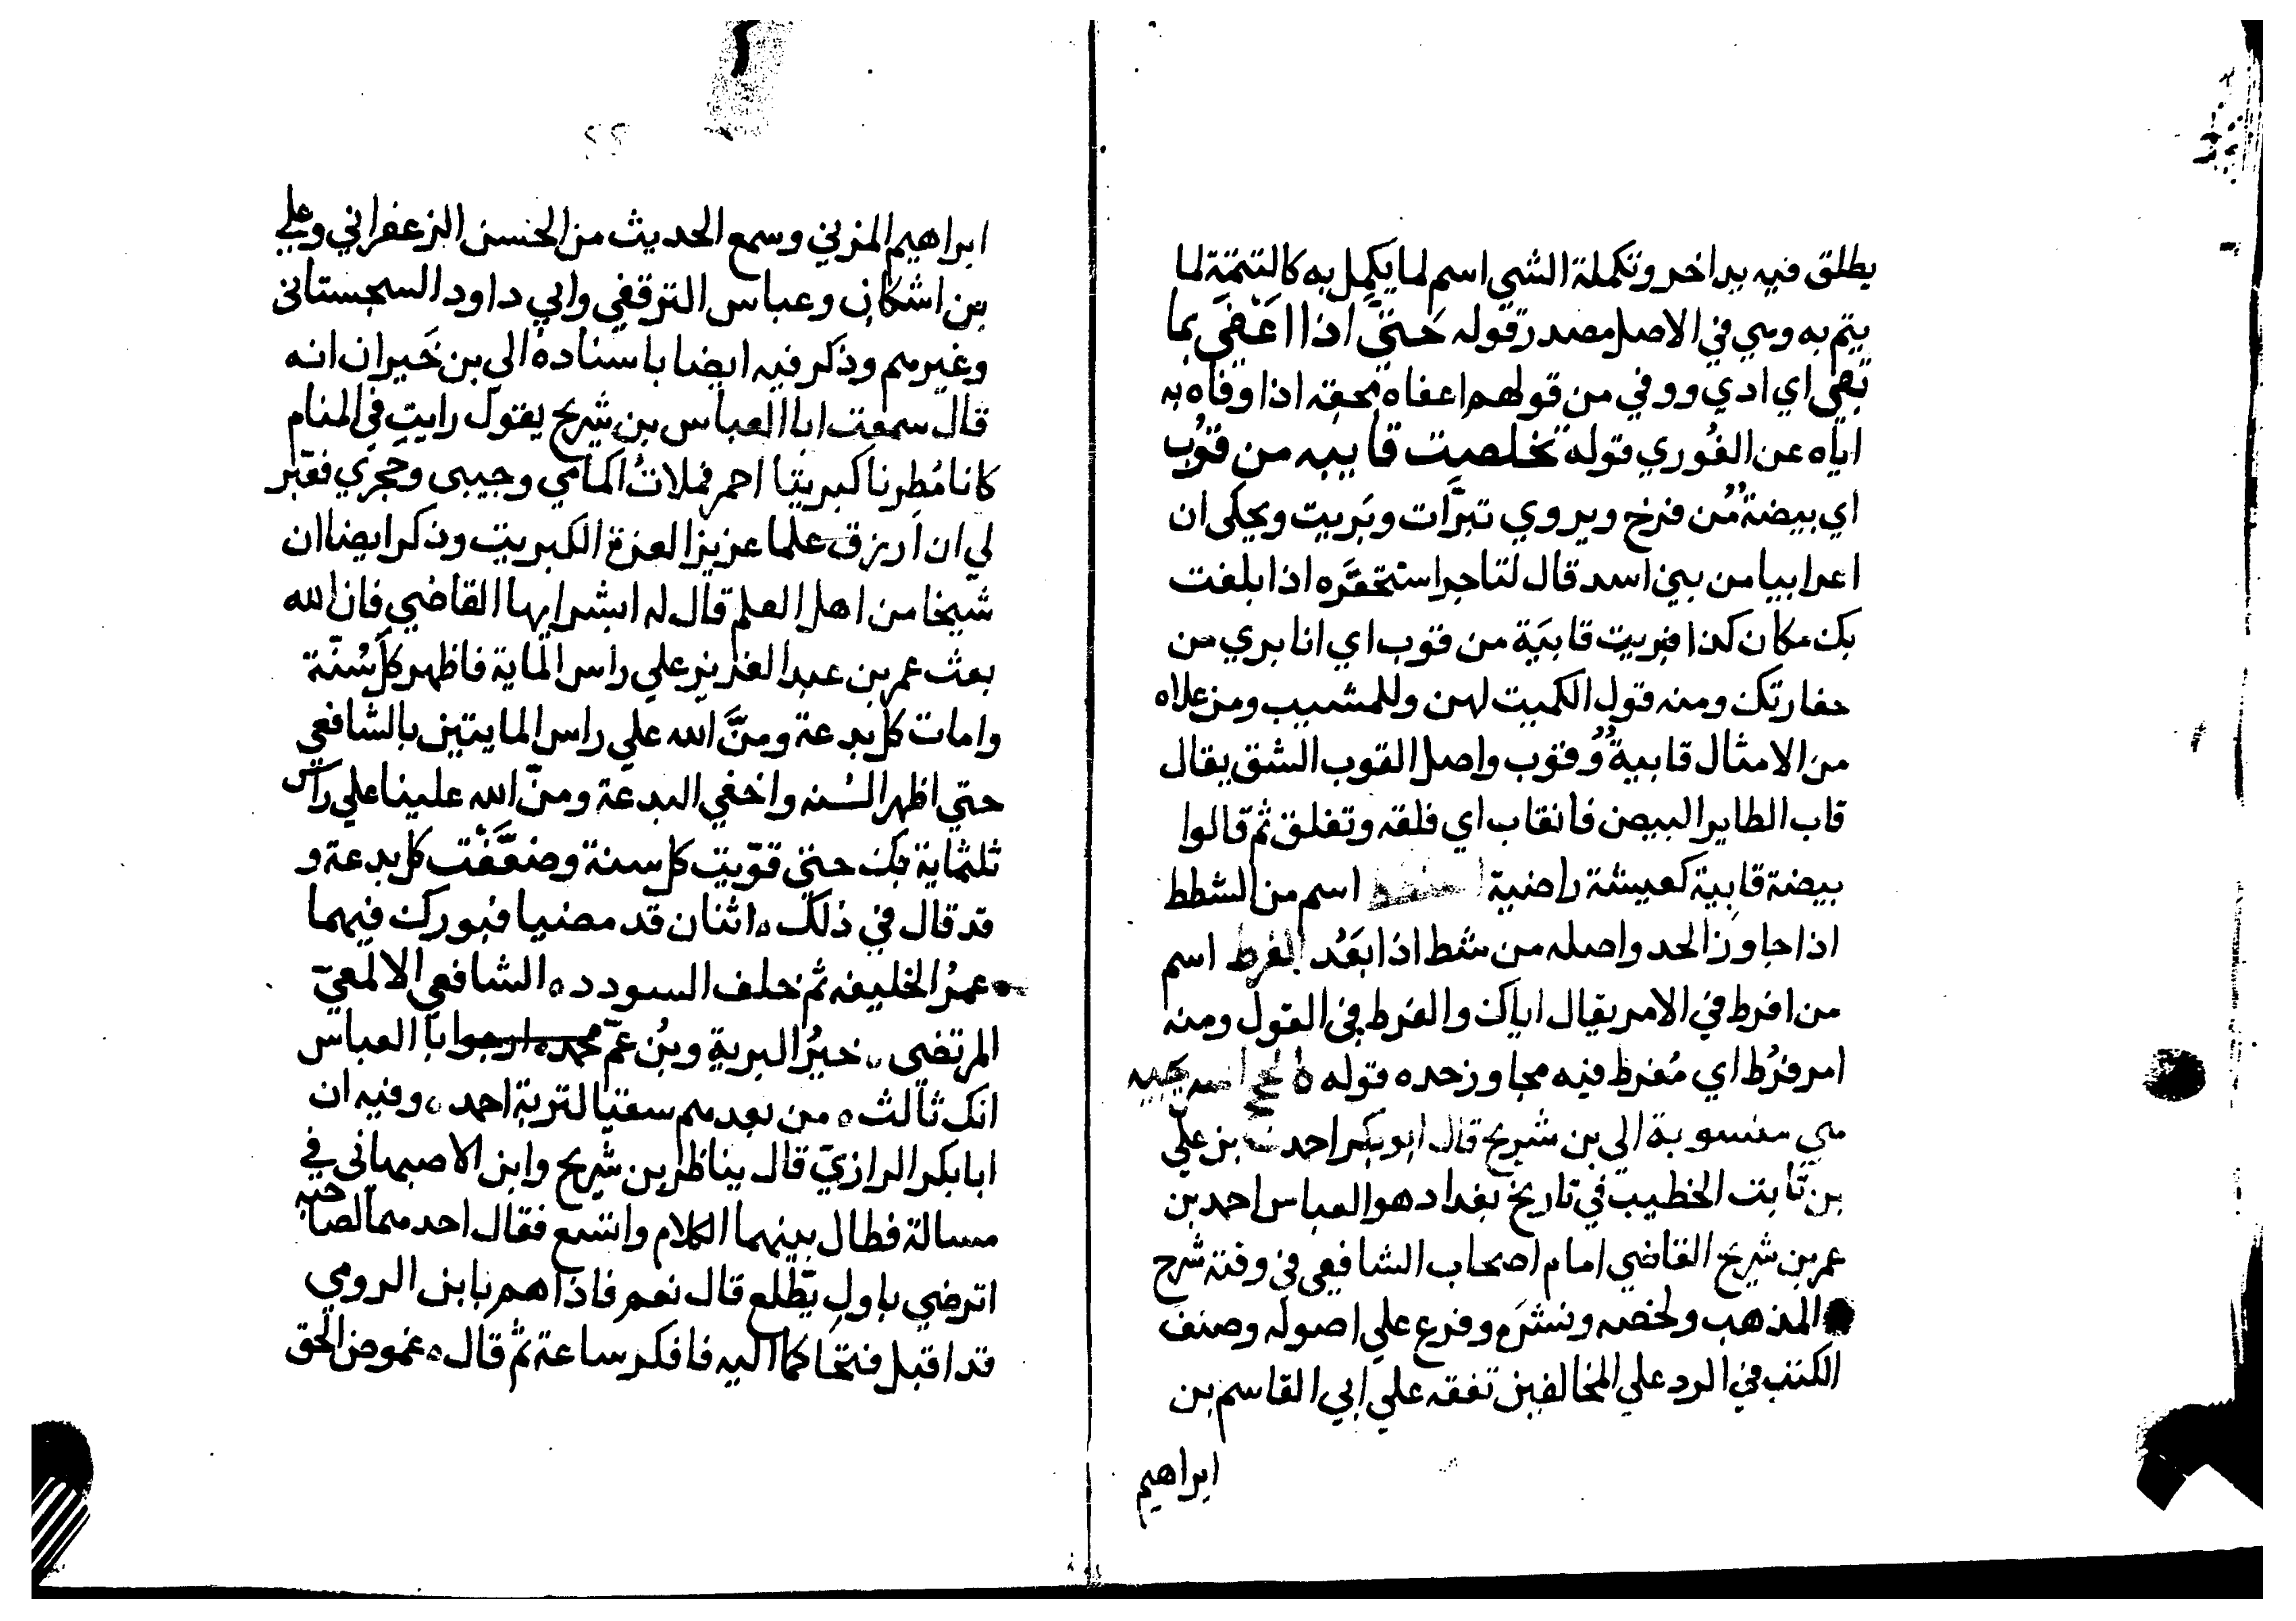 يطلق فيه بداخر وتكملة الشي اسم لما يكمل به كالتتمة لما
يتم به وهي في الاصل مصدر قوله حَتّيَ اذا اعْفَى بما
تفي اي ادي ووفي من قولهم اعفاه بحقه اذا وفاه به
اياه عن الغُوري قوله تخلصت قايبه من قُوب
اي بيضة من فرخ ويروي تبرَّات وبَريت ويحكى ان
اعرابيا من بني اسد قال لتاجر استخفَره اذا بلغت
بك مكان كذا فبريت قابيَة من قوب اي انا بري من
خفارتك ومنه قول الكميت لهن وللمشيب ومن علاه
من الامثال قابيةٌ وقوب واصل القوب الشق يقال
قاب الطاير البيض فانقاب اي فلقه وتفلق ثم قالوا
بيضة قابية كعيشة راضية اسم من الشطط
اذا جاوز الحد واصله من شط اذا بَعُد الفرط اسم
من افرط في الامر يقال اياك والفرط في القول ومنه
امر فرُط اي مُفرط فيه مجاوز حده قوله
هي منسوبة الي بن شريح قال ابو بكر احمد بن علي
بن ثابت الخطيب في تاريخ بغداد هو العباس احمد بن
عمر بن شريح القاضي امام اصحاب الشافعي في وقته شرح
المذهب ولخصه ونشرَه وفرع علي اصوله وصنف
الكتب في الرد علي المخالفين تفقه علي ابي القاسم بن
ابراهيم
ابراهيم المزني وسمع الحديث من الحسن الزعفراني وعلي
بن اشكاب وعباس الترقفي وابي داود السجستانى
وغيرهم وذكر فيه ايضا باسناده الي بن خَيران انه
قال سمعت ابا العباس بن شريح يقول رايت في المنام
كانا مُطِرنا كبريتا احمر فملاتُ اكمامي وجيبى وحجري فعّبر
لي ان ارزق علما عزيزا لعزة الكبريت وذكر ايضا ان
شيخا من اهل العلم قال له ابشر ايها القاضي فان الله
بعث عمر بن عبد العزيز علي راس الماية فاظهر كل سُنّة
وامات كل بدعة ومنَّ الله علي راس المايتين بالشافعي
حتي اظهر السُنه واخفي البدعة ومنّ الله علينا علي راس
ثلثماية بك حتي قوّيت كل سنة وضعَّفْت كل بدعة و
قد قال في ذلك ه اثنان قد مضيا فبورك فيهما
عمرُ الخليفه ثم خلف السودد ه الشافعي الالمعيّ
المرتضى ه خيرُ البرية وبُن عمّ محمد ه ارجوا با العباس
انك ثالث ه من بعدهم سقيا لتربة احمد ه وفيه ان
ابا بكر الرازيّ قال يناظر بن شُريح وابن الاصبهانى في
مسالة فطال بينهما الكلام واتسع فقال احدهما لصاحبه
اترضي باول يطّلع قال نعم فاذا هم بابن الرومي
قد اقبل فتحاكما اليه فافكر ساعة ثم قال ه غموض الحق